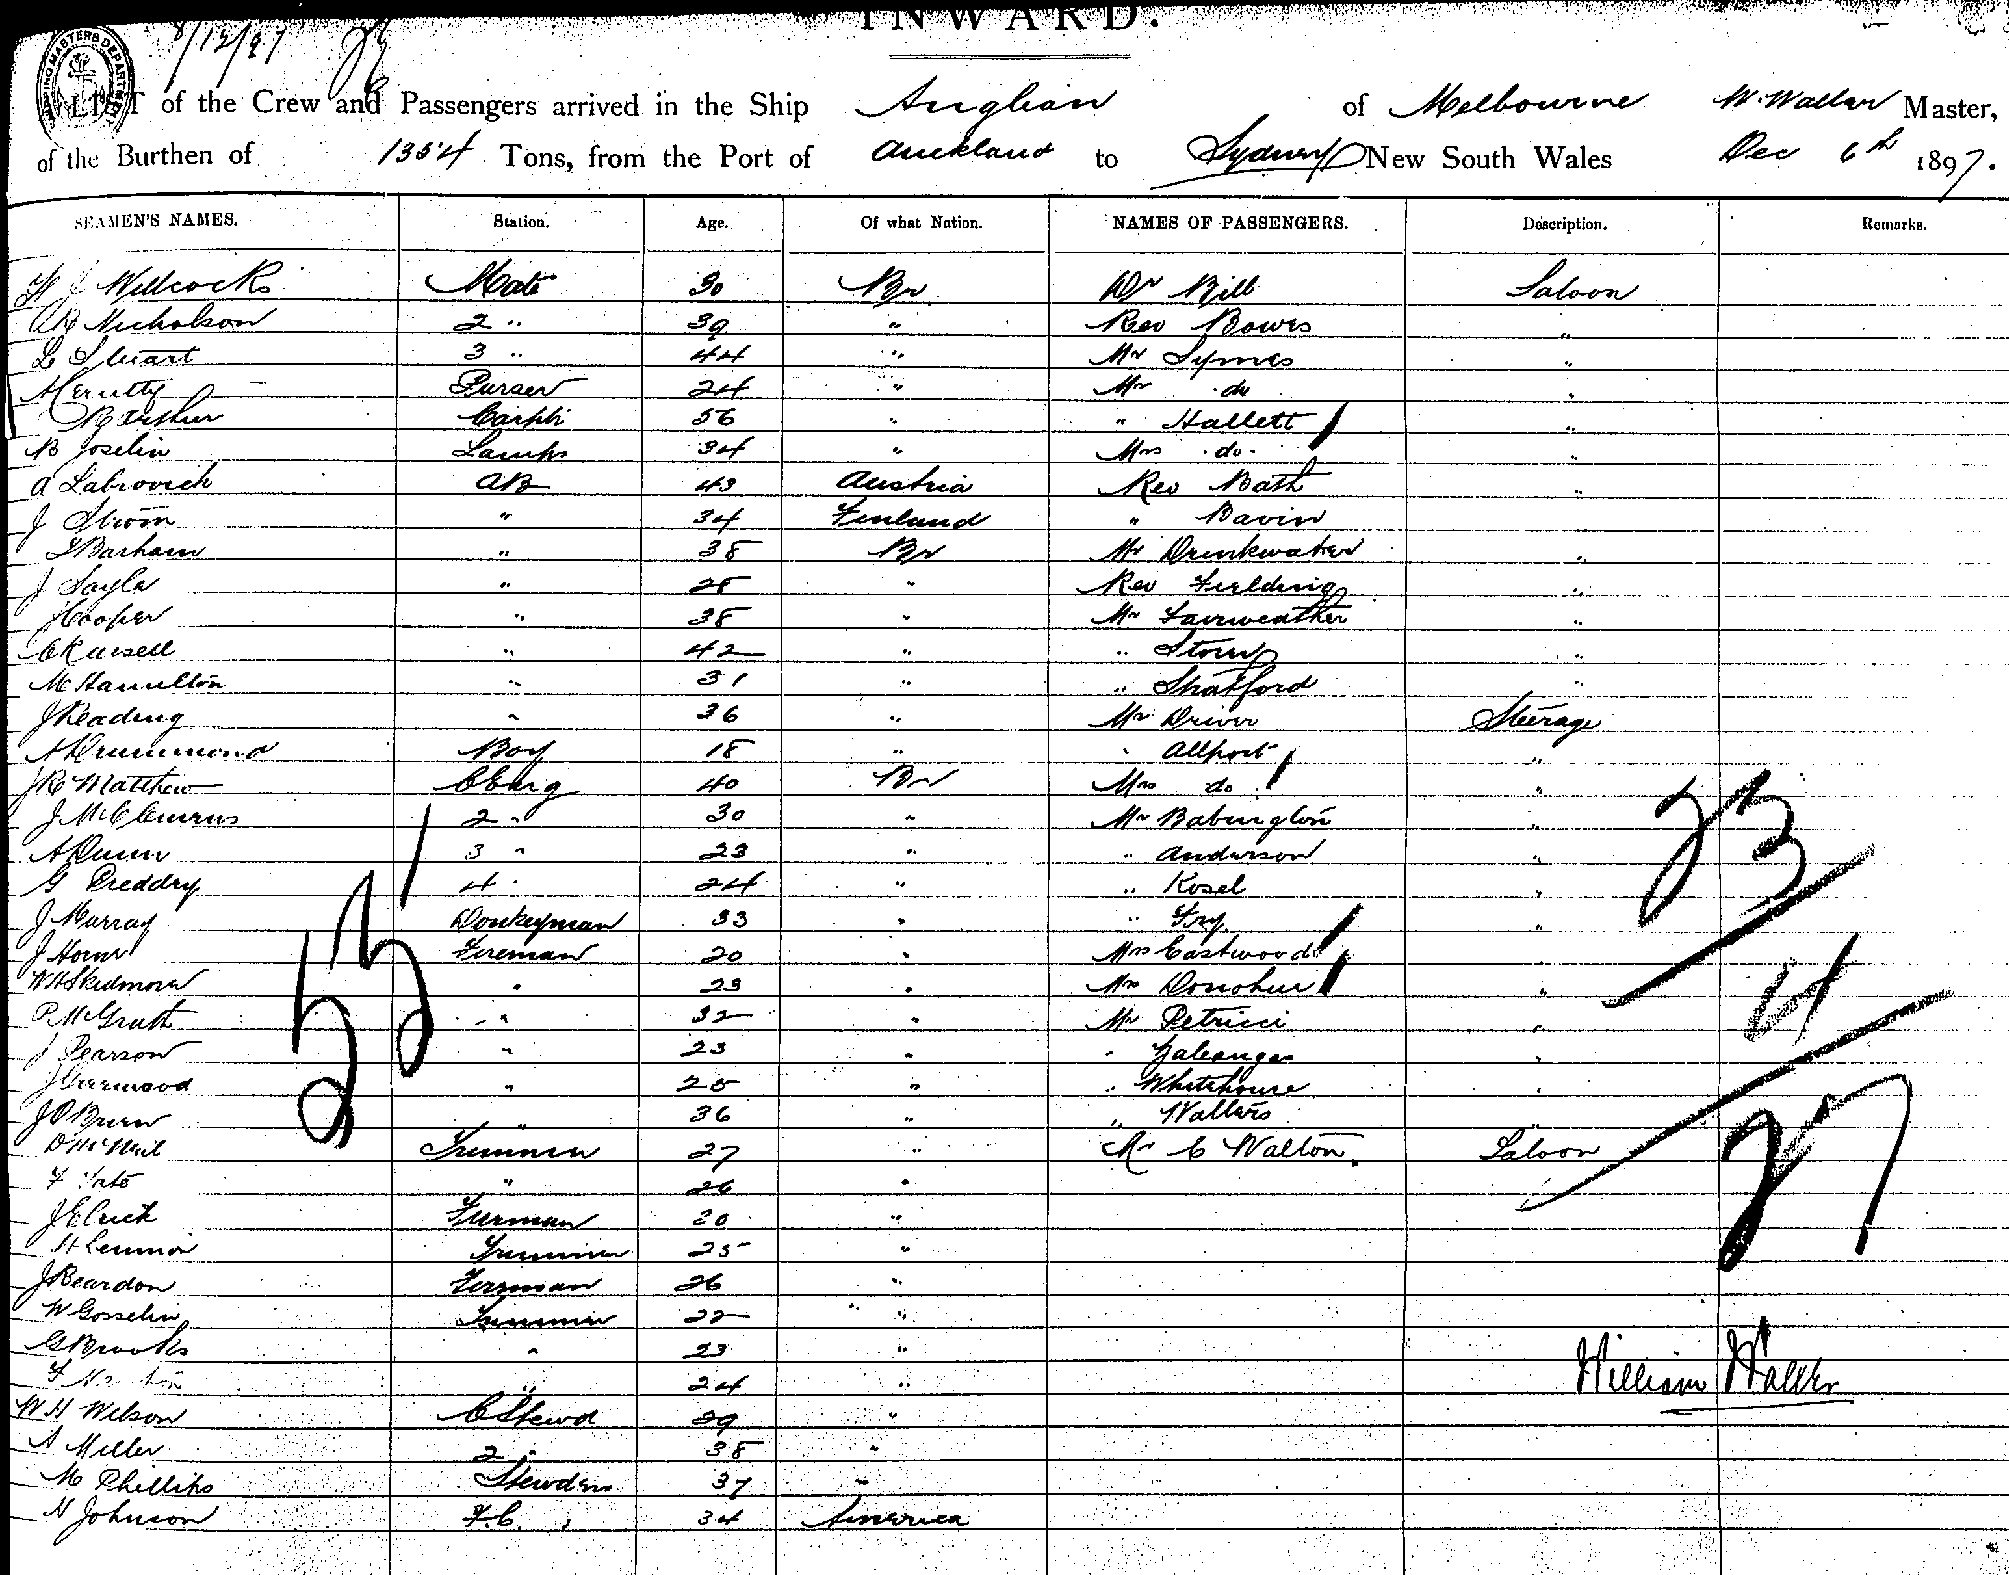 INWARD.
8/12/97
LIST of the Crew and Passengers arrived in the Ship Anglian of Melbourne W. Waller Master,
of the Burthen of 1354 Tons, from the Port of Auckland to Sydney New South Wales Dec 6th 1897.
SEAMEN'S NAMES. Station. Age. Of what Nation. NAMES OF PASSENGERS. Description. Remarks.
W J Willcocks Mate 30 Br Dr Bill Saloon
Nicholson 2 " 39 " Rev Bowes "
L Stuart 3 " 44 " Mr Symes "
Purser 24 " Mr do "
B Arthur 56 " " Hallett "
B Joselin Lamps 34 " Mrs do. "
A Labrovich AB 43 Austria Rev Bath "
J Strom " 34 Finland " Bavin
Barham " 38 Br Mr Drinkwater "
J Sayle " 28 " Rev Fielding "
J Cooper " 38 " Mr Fairweather "
C Russell " 42 " " Storry "
M Hamilton " 31 " " Stratford "
J Reading " 36 " Mr Driver Steerage
A Drummond Boy 18 " " Allport "
J R Matthew C Eng 40 Br Mrs do "
J McClemens 2 " 30 " Mr Babington "
A Dunn 3 " 23 " " Anderson "
G Preddry 4 " 24 " " Kosel "
J Murray Donkeyman 33 " " Fry "
J Horne Fireman 20 " Mrs Eastwood
W H Skidmore " 23 " Mrs Donohue "
P McGrath " 32 " Mr Petricci "
J Pearson " 23 " "
J Garmwood " 25 " " Whitehouse "
J O'Brien " 36 " " Walters "
D McNeil Trimmer 27 " Mr C Walton Saloon
F Tate " 26 "
Fireman 20 "
H Lennon Trimmer 25 "
J Reardon Fireman 26 "
W Gosselin Trimmer 22 "
G Brooks " 23 "
F " 24 "
W H Wilson C Stewd 29 "
A Miller 2 " 38 "
M Phillips Stewdess 37 "
H Johnson F.C. 34 America
23
27
William Waller